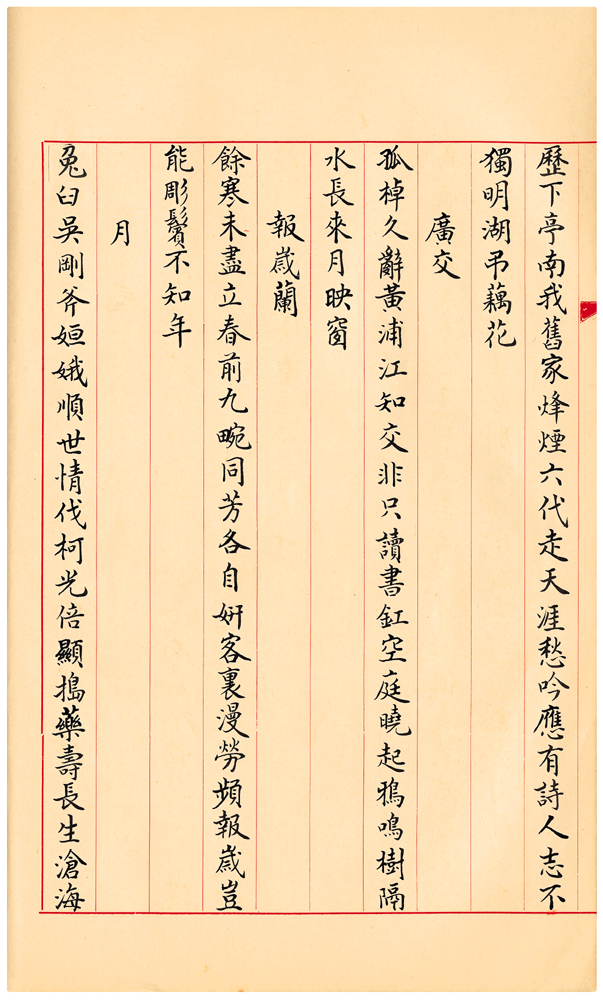 歷下亭南我舊家烽煙六代走天涯愁吟應有詩人志不
獨明湖弔藕花
廣交
孤棹久辭黃浦江知交非只讀書釭空庭曉起鴉鳴樹隔
水長來月映窗
報歲蘭
餘寒未盡立春前九畹同芳各自妍客裏漫勞頻報歲豈
能彫鬢不知年
月
兔臼吳剛斧姮娥順世情伐柯光倍顯搗藥壽長生滄海